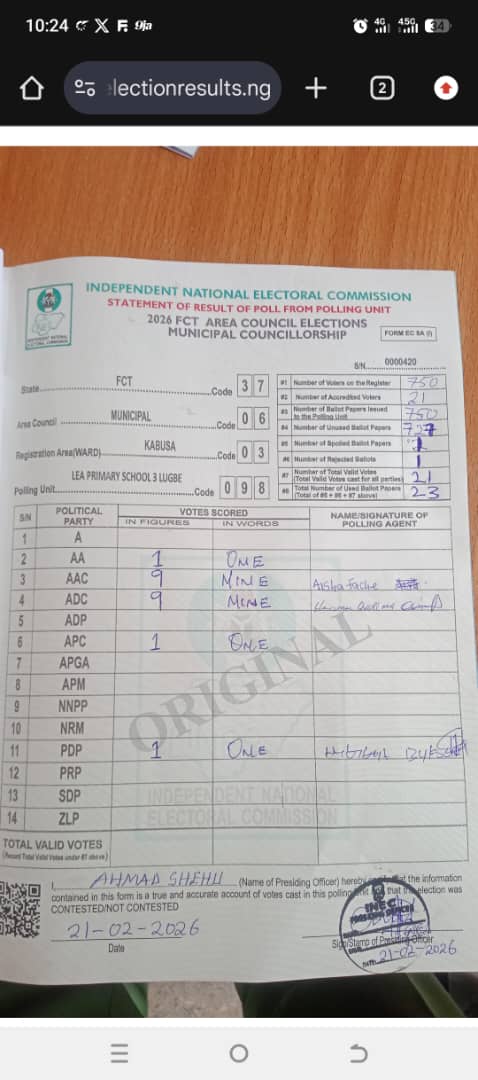 10:24 X F. 9ja 4G 4.5G 34
lectionresults.ng + 2
INDEPENDENT NATIONAL ELECTORAL COMMISSION
STATEMENT OF RESULT OF POLL FROM POLLING UNIT
2026 FCT AREA COUNCIL ELECTIONS
MUNICIPAL COUNCILLORSHIP
FORM EC 8A (I)
S/N 0000420
State FCT Code 37
Area Council MUNICIPAL Code 06
Registration Area(WARD) KABUSA Code 03
Polling Unit LEA PRIMARY SCHOOL 3 LUGBE Code 098
#1 Number of Voters on the Register 750
#2 Number of Accredited Voters 21
#3 Number of Ballot Papers Issued to the Polling Unit 750
#4 Number of Unused Ballot Papers 727
#5 Number of Spoiled Ballot Papers
#6 Number of Rejected Ballots 1
#7 Number of Total Valid Votes (Total Valid Votes cast for all parties) 21
#8 Total Number of Used Ballot Papers (Total of #5 + #6 + #7 above) 23
S/N POLITICAL PARTY VOTES SCORED IN FIGURES IN WORDS NAME/SIGNATURE OF POLLING AGENT
1 A
2 AA 1 ONE
3 AAC 9 MINE Aisha
4 ADC 9 MINE
5 ADP
6 APC 1 ONE
7 APGA
8 APM
9 NNPP
10 NRM
11 PDP 1 ONE
12 PRP
13 SDP
14 ZLP
ORIGINAL
INDEPENDENT NATIONAL
ELECTORAL COMMISSION
TOTAL VALID VOTES
(Record Total Valid Votes under #7 above)
I, AHMAD SHEHU (Name of Presiding Officer) hereby that the information
contained in this form is a true and accurate account of votes cast in this polling unit and that the election was
CONTESTED/NOT CONTESTED
21-02-2026
Date
INEC
Sign/Stamp of Presiding Officer
21-02-2026